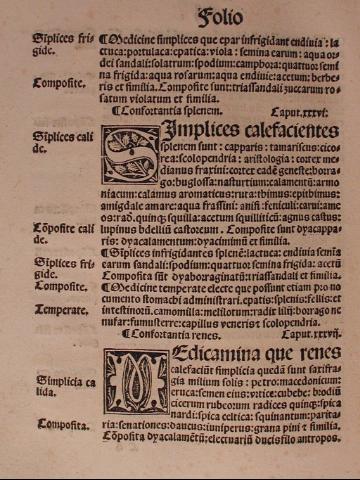 Folio
Sĩplices fri-
gide.
¶Medicine simplices que epar infrigidant endiuia : la
ctuca:portulaca:epatica:viola : semina earum : aqua or-
dei sandali:solatrum:spodium:camphora:quattuor semi
na frigida:aqua rosarum:aqua endiuie:acetum:berbe-
Composite.
ris et similia. Composite sunt:triassandali zuccarum ro-
satum violatum et similia.
¶Confortantia splenem. Caput.xxxvi:
Sĩplices cali
de.
SImplices calefacientes
splenem sunt : capparis : tamariscus:cico-
rea:scolopendria : aristologia : cortex me-
dianus fraxini:cortex cade geneste:borra-
go:buglossa:nasturtium:calamentũ:armo-
niacum:calamus aromaticus:ruta:thimus:epithimus:
amigdale amare:aqua fraxini: anisi:feniculi:carui:ame-
os:rad. quinqz squilla:acetum squilliticũ:agnus castus:
Cõposite cali
de.
lupinus bdelliũ castoreum . Composite sunt dyacappa-
ris:dyacalamentum:dyaciminũ et similia.
Sĩplices fri-
gide.
¶Simplices infrigidantes splenẽ:lactuca:endiuia semĩa
earum sandali:spodium:quattuor semina frigida: acetũ
Composite.
Composita sũt dyaboraginatũ:triassandali et similia.
¶Medicine temperate electe que possunt etiam pro no
cumento stomachi administrari.epatis:splenis:fellis:et
Temperate.
intestinorũ.camomilla:melilotum:radix lilij:borago ne
nufar:fumusterre:capillus veneris:scolopendria.
¶Confortantia renes. Caput.xxxvij.
Simplicia ca
lida.
MEdicamina que renes
calefaciũt simplicia quedã sunt saxifra-
gia milium solis : petro:macedonicum:
eruca:semen eius:vrtice:cubebe: brodiũ
cicerum rubeorum radices quinqz:spica
nardi:spica celtica: squinantum:parita-
Composita.
ria:senationes:daucus:iuniperus:grana pini et similia.
Cõposita dyacalamẽtũ:electuariũ ducis:filo antropos.